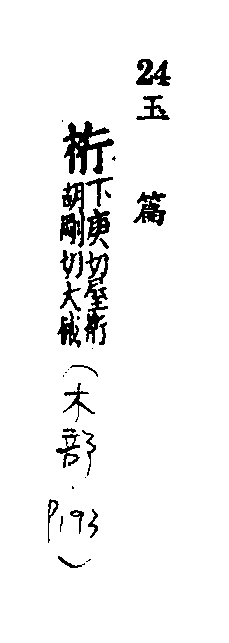 24玉篇
桁
下庚切屋桁
胡剛切大械
(木部.P193)